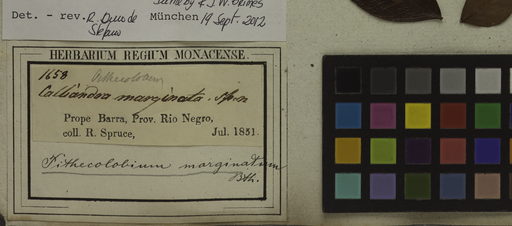 Det. - rev. R. München 19 Sept. 2012
HERBARIUM REGIUM MONACENSE.
1658 Pithecolobium
Calliandra marginata. Spr.
Prope Barra, Prov. Rio Negro,
coll. R. Spruce, Jul. 1851.
Pithecolobium marginatum
Bth.